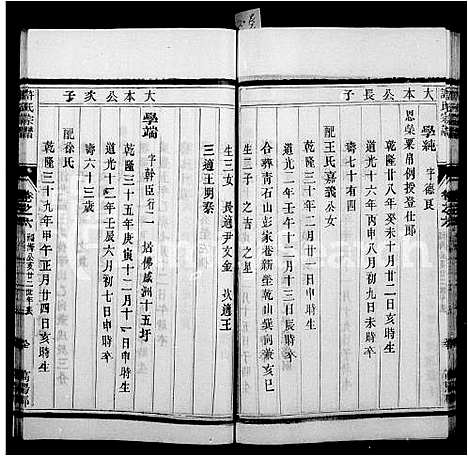 許氏宗譜
卷之六
大本公長子
學純 字德良
恩榮粟帛例授登仕郎
乾隆廿八年癸未十月廿二日亥時生
道光十六年丙申八月初九日未時卒
壽七十有四
配王氏嘉議公女
乾隆三十年二月初二日申時生
道光二年壬午十二月十三日辰時卒
合葬青石山彭家巷新塋乾山巽向兼亥巳
生二子 之吉 之星
生三女 長適尹文金 次適王
三適王明泰
大本公次子
學端 字幹臣行二 居佛感洲十五圩
乾隆三十五年庚寅十二月十一日申時生
道光十二年壬辰六月初七日申時卒
壽六十三歲
配徐氏
乾隆三十九年甲午正月廿四日亥時生
許氏宗譜
卷之六